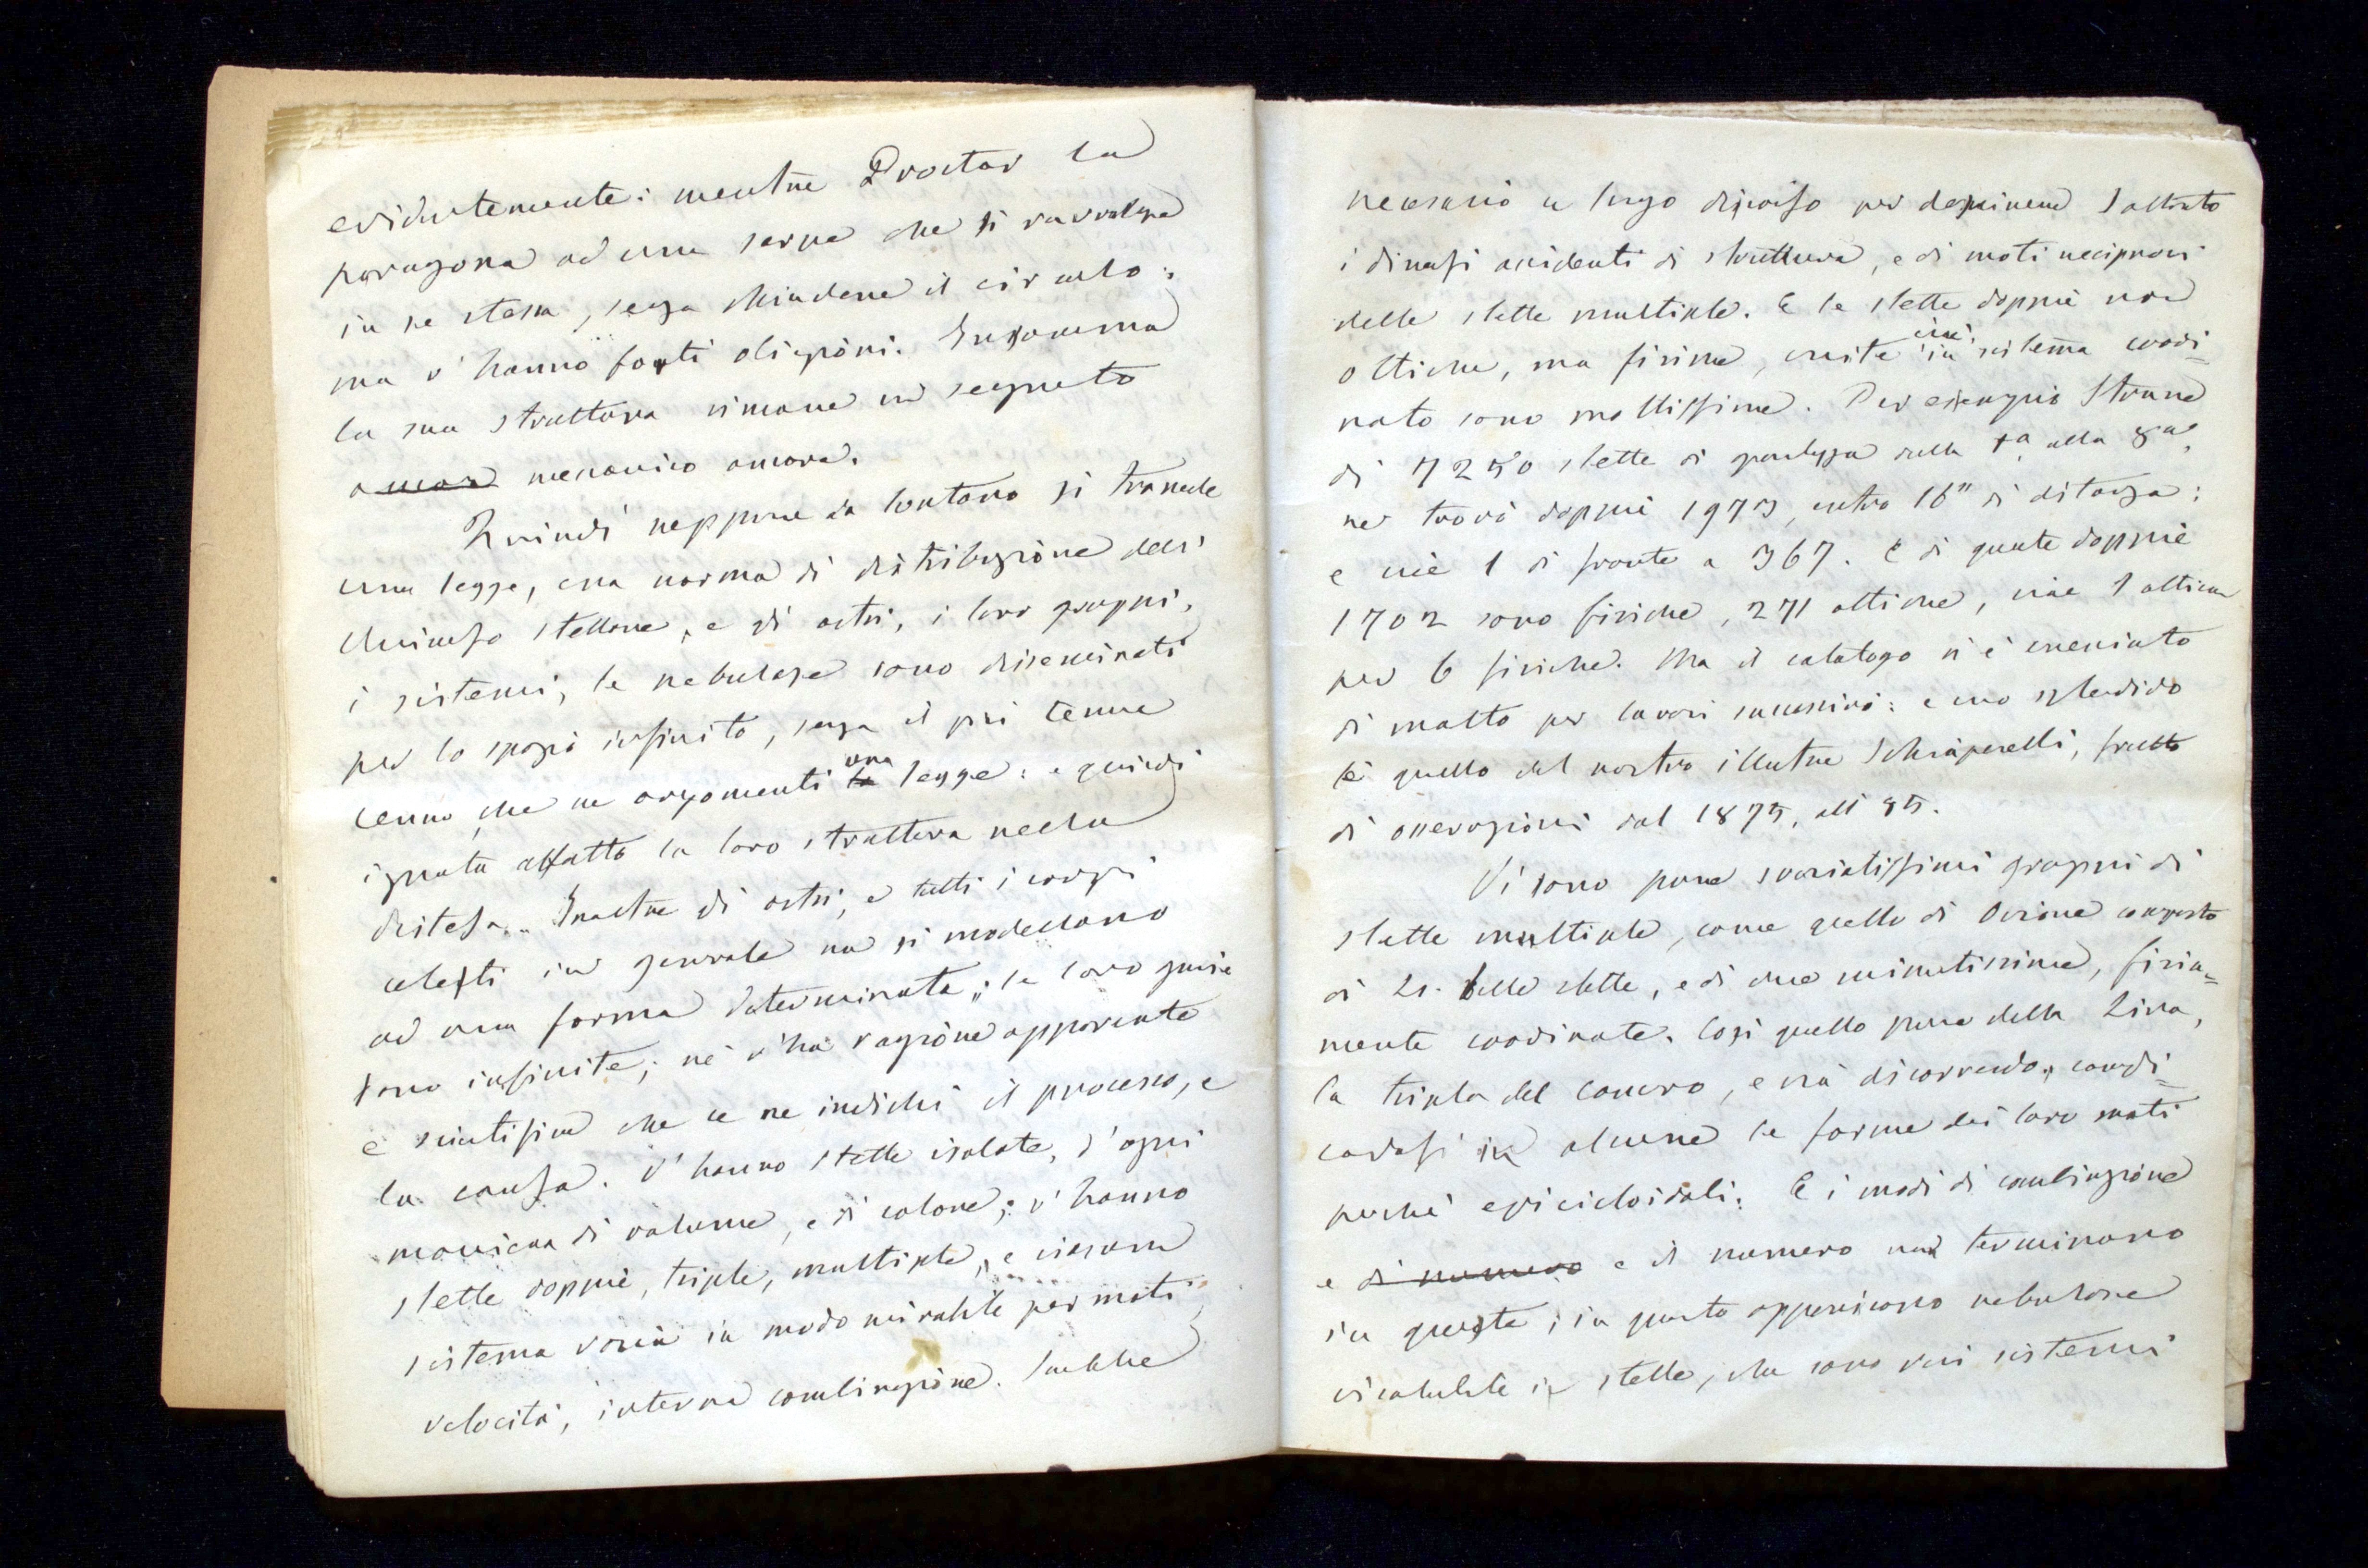 evidentemente: mentre Proctor la
paragona ad una serpe che si ravvolge
in se stessa, senza chiudere il circulo:
ma v' hanno forti objezioni. Insomma
la sua struttura rimane un segreto
meccanico ancora.
Quindi neppure da lontano si travede
una legge, una norma di distribuzione dell'
Universo stellare, e gli astri, i loro gruppi,
i sistemi, le nebulose sono diseminati
per lo spazio infinito, senza il più tenue
cenno che ne argomenti una legge: e quindi
ignota affatto la loro struttura nella
distesa. Inoltre gli astri, e tutti i corpi
celesti in generale non si modellano
ad una forma determinata; le loro guise
sono infinite; nè v'ha ragione apparente
e scientifica che ce ne indichi il processo, e
la causa. V' hanno stelle isolate, d' ogni
maniera di volume, e di colore; v' hanno
stelle doppie, triple, multiple, e ciascun
sistema varia in modo mirabile per moti
velocità, interna combinazione. Sarebbe
necessario un lungo discorso per descrivere soltanto
i diversi accidenti di struttura, e di moti reciproci
delle stelle multiple. E le stelle doppie non
ottiche, ma fisiche, unite cioè in sistema coordi=
nato sono moltissime. Per esempio Struve
di 7250 stelle di grandezza dalla 1a alla 8a,
ne trovò doppie 1973, entro 16" di distanza:
e cioè 1 di fronte a 367. E di queste doppie
1702 sono fisiche, 271 ottiche, cioè 1 ottica
per 6 fisiche. Ma il catalogo si è cresciuto
di molto per lavori successivi: e uno splendido
è quello del nostro illustre Schiaparelli, frutto
di osservazioni dal 1875, all' 85.
Vi sono pure svariatissimi gruppi di
stelle multiple, come quello di Orione composto
di belle stelle, e di due minutissime, fisica=
mente coordinate. Così quello pure della Lira,
la tripla del Cancro, e via discorrendo,
in alcune le forme dei loro moti
perchè epicicloidali. E i modi di combinazione
e di numero e il numero non terminano
in queste; in quanto appariscono nebulose
risolubili in stelle, che sono veri sistemi